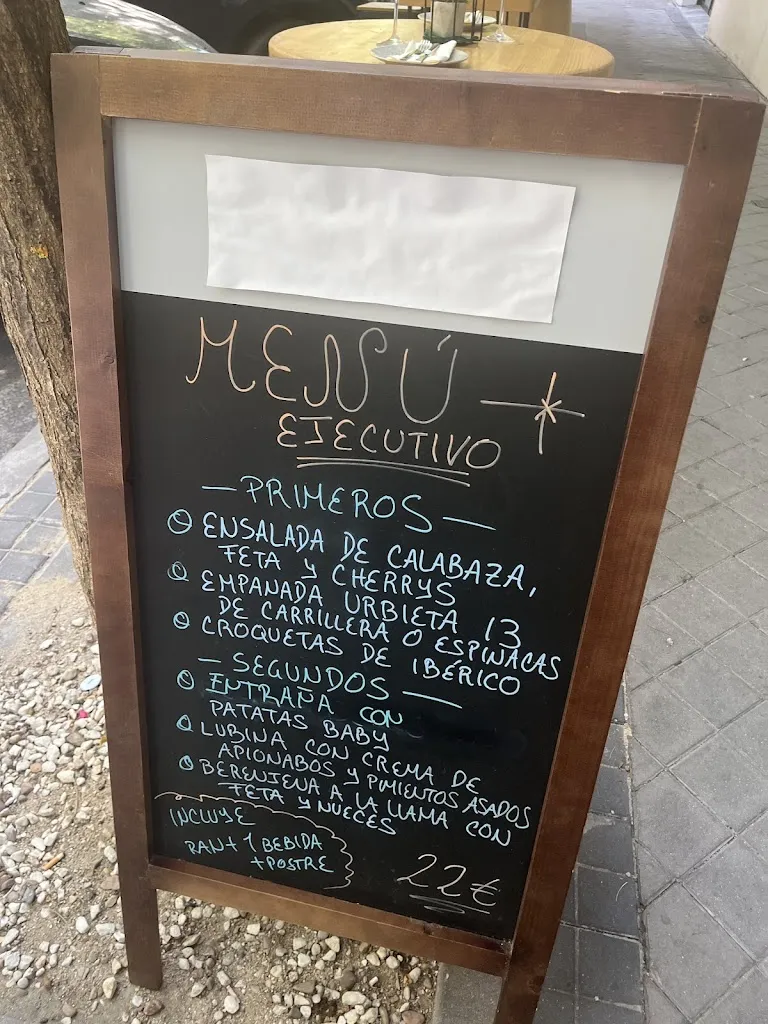 MENÚ
EJECUTIVO
— PRIMEROS —
ENSALADA DE CALABAZA,
FETA Y CHERRYS
EMPANADA URBIETA 13
DE CARRILLERA O ESPINACAS
CROQUETAS DE IBÉRICO
— SEGUNDOS —
ENTRAÑA CON
PATATAS BABY
LUBINA CON CREMA DE
APIONABOS Y PIMIENTOS ASADOS
BERENJENA A LA LLAMA CON
FETA Y NUECES
INCLUYE
PAN + 1 BEBIDA
+ POSTRE
22€